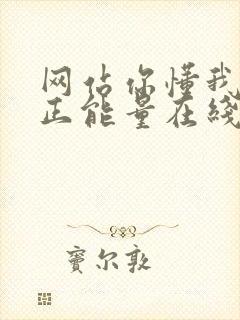 网站你懂我
正能量在线
窦尔敦